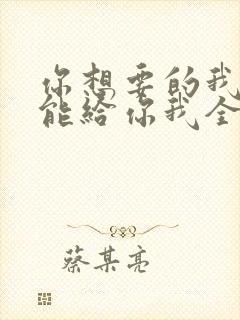 你想要的我
能给你我全
蔡某亮